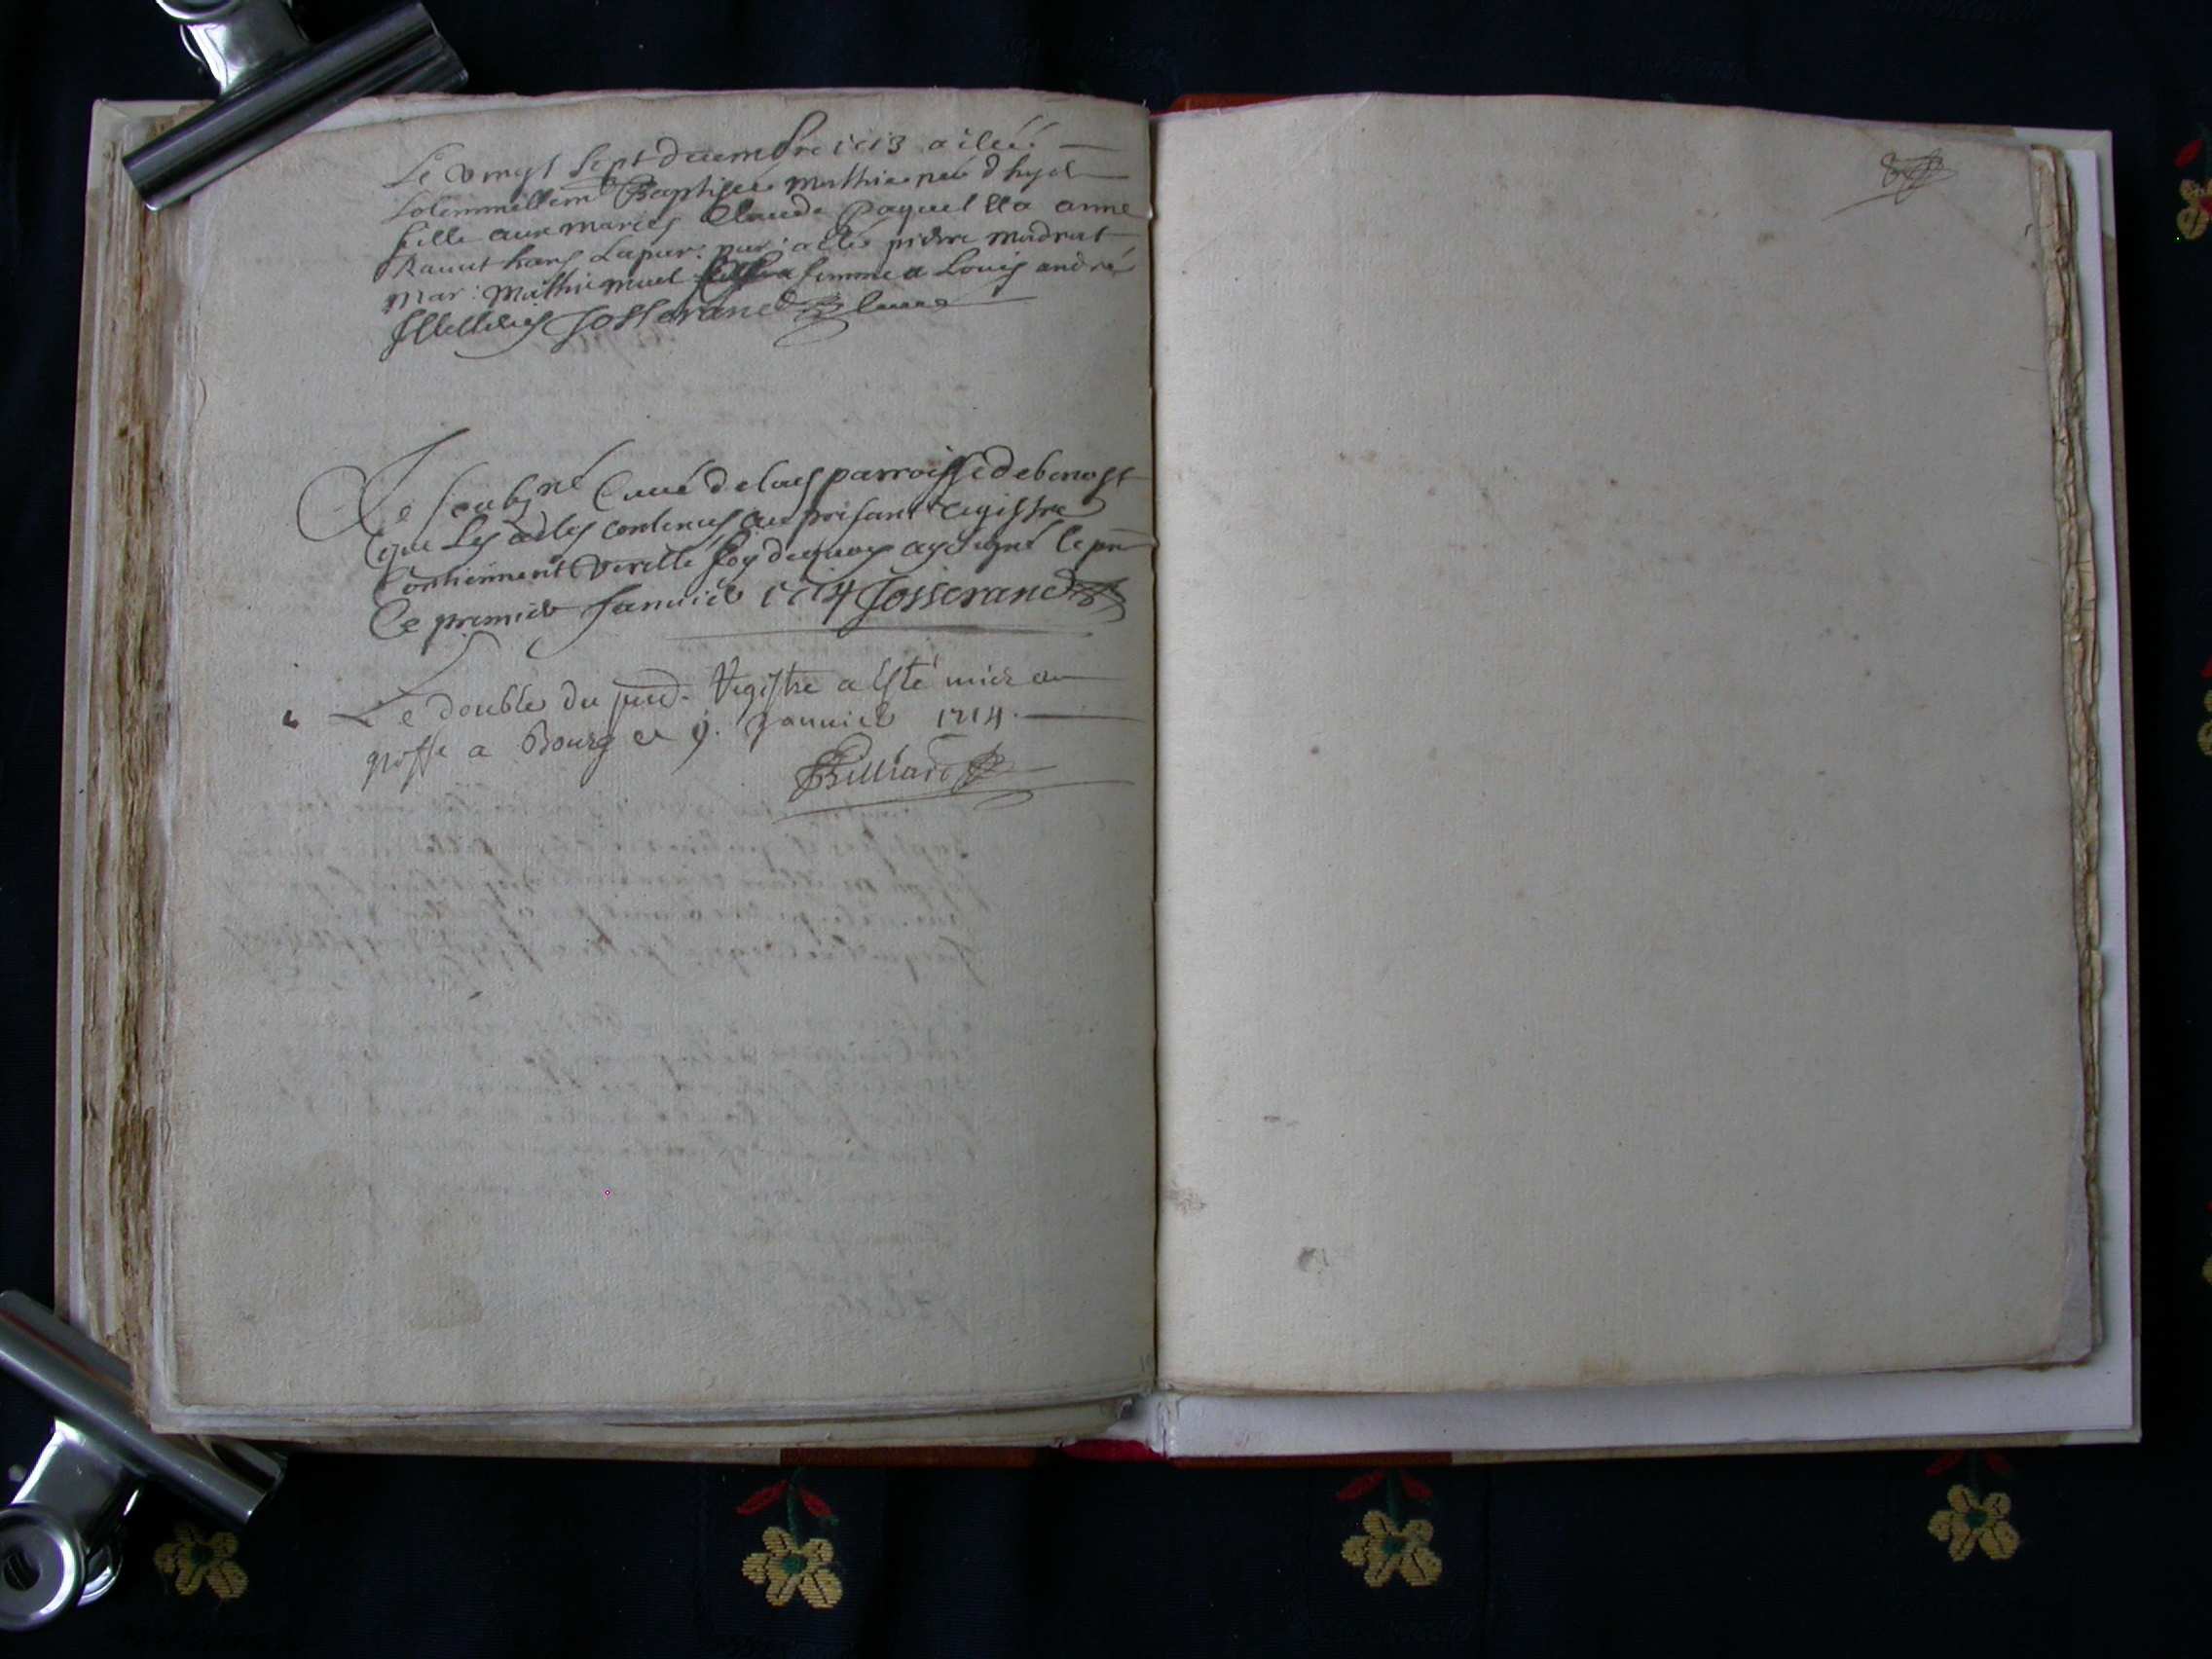 Le vingt sept decembre 1713 a ilêé
solemnellem Baptisée mathie née d hyer
fille aux mariés Claude Paquet et a anne
Ravut hans Le par: par: a été pierre madrat
mar: Mathie muel femme a Louis andré
Illetterés Josserand Curé
Je soubsné Curé de la parroisse de benost
que Les actes contenus au présant registre
Contiennent verité foy de quoy ay signé le pnt
Ce premier Januier 1714 Josserand
Le double du pnt. Registre a esté mis au
greffe a Bourg ce 9. Januier 1714.
Billiard